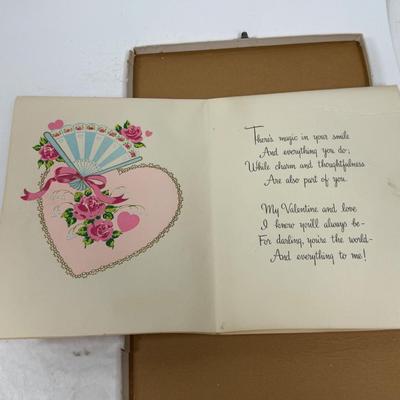 There's magic in your smile
And everything you do;
While charm and thoughtfulness
Are also part of you.
My Valentine and love
I know you'll always be—
For darling, you're the world—
And everything to me!